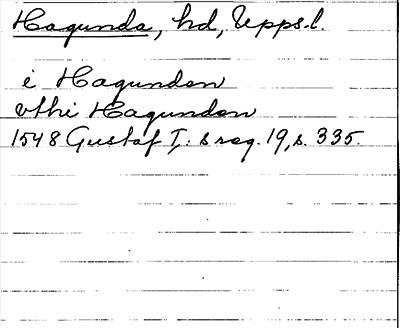 Hagunda, hd, Upps.l.
i Hagundan
vthi Hagundan
1548 Gustaf I:s reg. 19, s. 335.